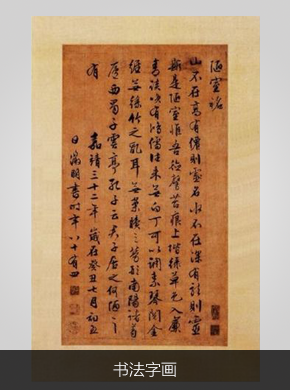 陋室銘
山不在高有僊則靈名水不在深有龍則靈
斯是陋室惟吾德馨苔痕上堦綠草色入簾
青談笑有鴻儒往來無白丁可以調素琴閱金
經無絲竹之亂耳無案牘之勞形南陽諸葛
廬西蜀子雲亭孔子云君子居之何陋之
有
嘉靖三十二年歲在癸丑七月初五
日徵明書時年八十有四
书法字画